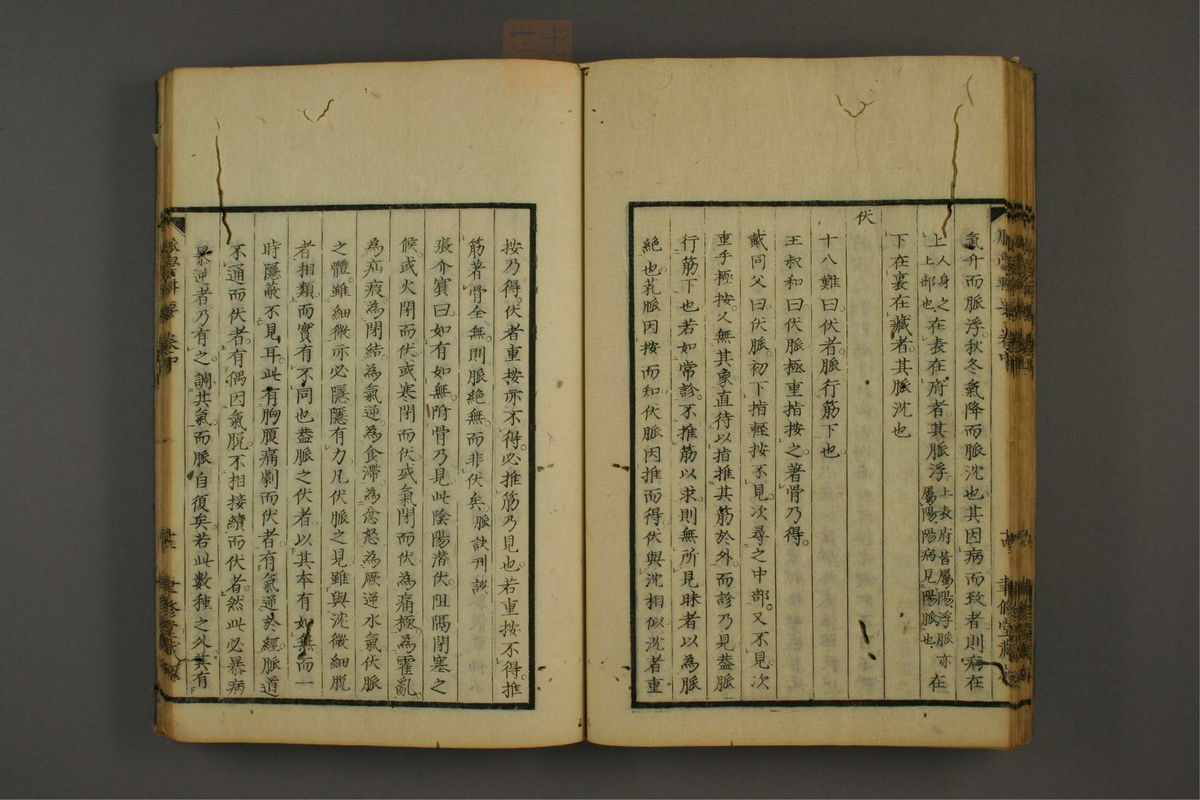 氣升而脈浮秋冬氣降而脈沈也其因病而致者則病在
上人身之在表在府者其脈浮上表府皆屬陽浮脈亦在
上上部也屬陽陽病見陽脈也
下在裏在藏者其脈沈也
伏
十八難曰伏者脈行筋下也
王叔和曰伏脈極重指按之著骨乃得
戴同父曰伏脈初下指輕按不見次尋之中部又不見次
重手極按又無其象直待以指推其筋於外而診乃見蓋脈
行筋下也若如常診不推筋以求則無所見昧者以為脈
絶也芤脈因按而知伏脈因推而得伏與沈相似沈者重
按乃得伏者重按亦不得必推筋乃見也若重按不得推
筋著骨全無則脈絶無而非伏矣脈訣刊誤
張介賓曰如有如無附骨乃見此陰陽潛伏阻隔閉塞之
候或火閉而伏或寒閉而伏或氣閉而伏為痛極為霍亂
為疝瘕為閉結為氣逆為食滯為忿怒為厥逆水氣伏脈
之體雖細微亦必隱隱有力凡伏脈之見雖與沈微細脫
者相類而實有不同也蓋脈之伏者以其本有如無而一
時隱蔽不見耳此有胸腹痛劇而伏者有氣逆於經脈道
不通而伏者有偶因氣脫不相接續而伏者然此必暴病
暴逆者乃有之調其氣而脈自復矣若此數種之外其有
脈學輯要 卷中
聿修堂藏